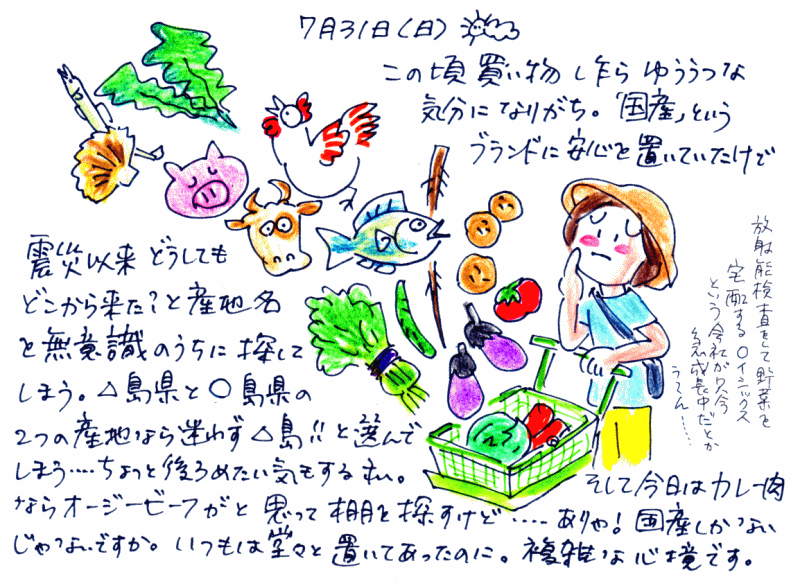 7月31日(日)
この頃 買い物 し乍ら ゆううつな
気分に なりがち。「国産」という
ブランドに 安心を 置いていたけど
震災以来 どうしても
どこから来た?と 産地名
を 無意識のうちに 探して
しまう。△島県と 〇島県の
2つの産地なら 迷わず △島!!と 選んで
しまう‥‥ちょっと 後ろめたい 気もする
ならオージービーフがと 思って 棚を 探すけど‥‥ありゃ!国産しかない
じゃないですか。いつもは 堂々と 置いてあったのに。複雑な心境です。
そして今日は カレー肉
放射能検査をして野菜を
宅配する 〇イシックス
という会社が只今
急成長中だとか
ううん‥‥‥